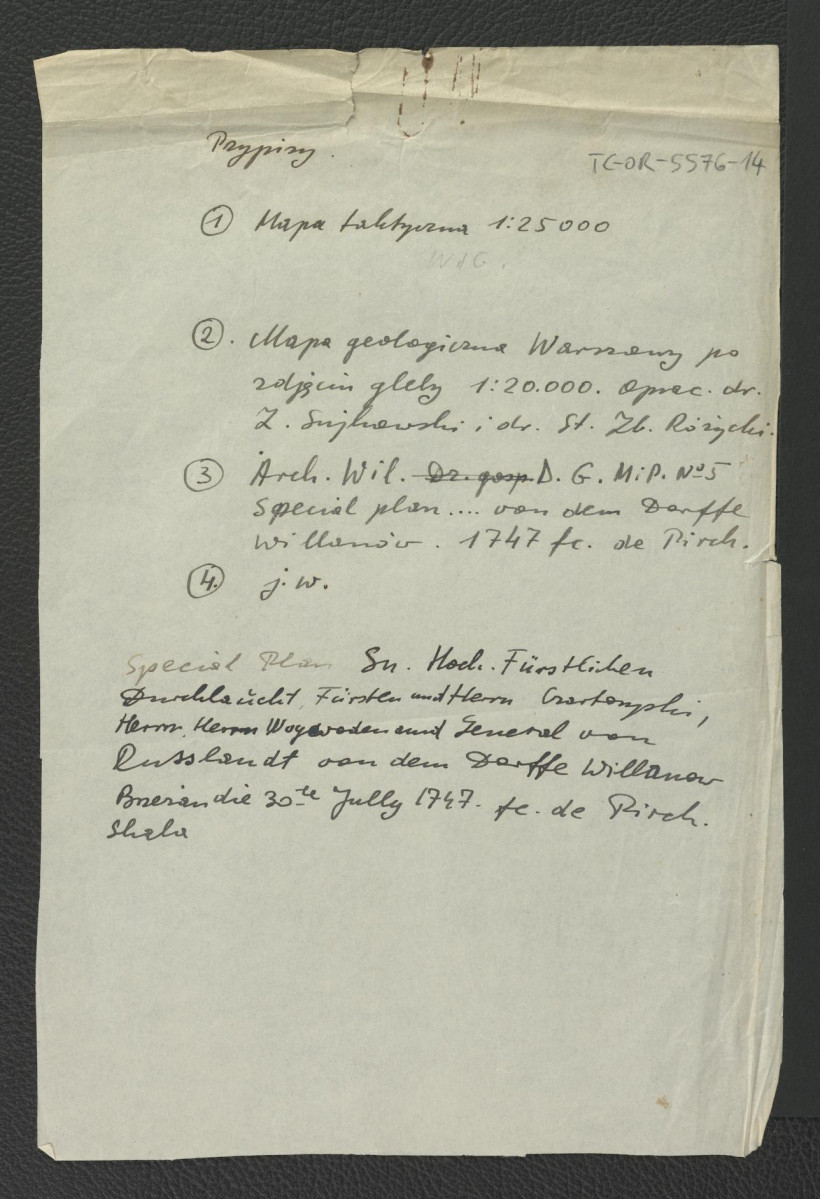 Przypisy.
TG-OR-5576-14
① Mapa taktyczna 1:25000
W.I.G.
②. Mapa geologiczna Warszawy po
zdjęciu gleby 1:20.000. oprac. dr.
Z. Sujkowski i dr. St. Zb. Różycki.
③ Arch. Wil. Dz. gosp. D. G. M.i P. Nº 5
Special plan.... von dem Dorffe
Willanów. 1747 fc. de Pirch.
④. j.w.
Special Plan Sn. Hoch. Fürstlichen
Durchlaücht, Fürsten und Herrn Czartoryski,
Herrn, Herrn Woywoden und General von
Russlandt von dem Dorffe Willanow
die 30te Jully 1747. fc. de Pirch.
Skala